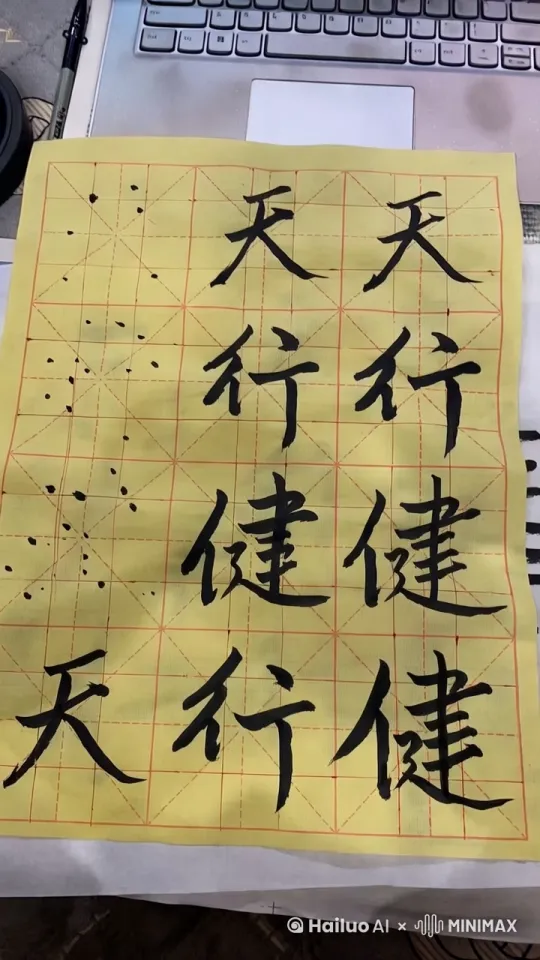 天行健
天行健
天行健
Hailuo AI × MINIMAX